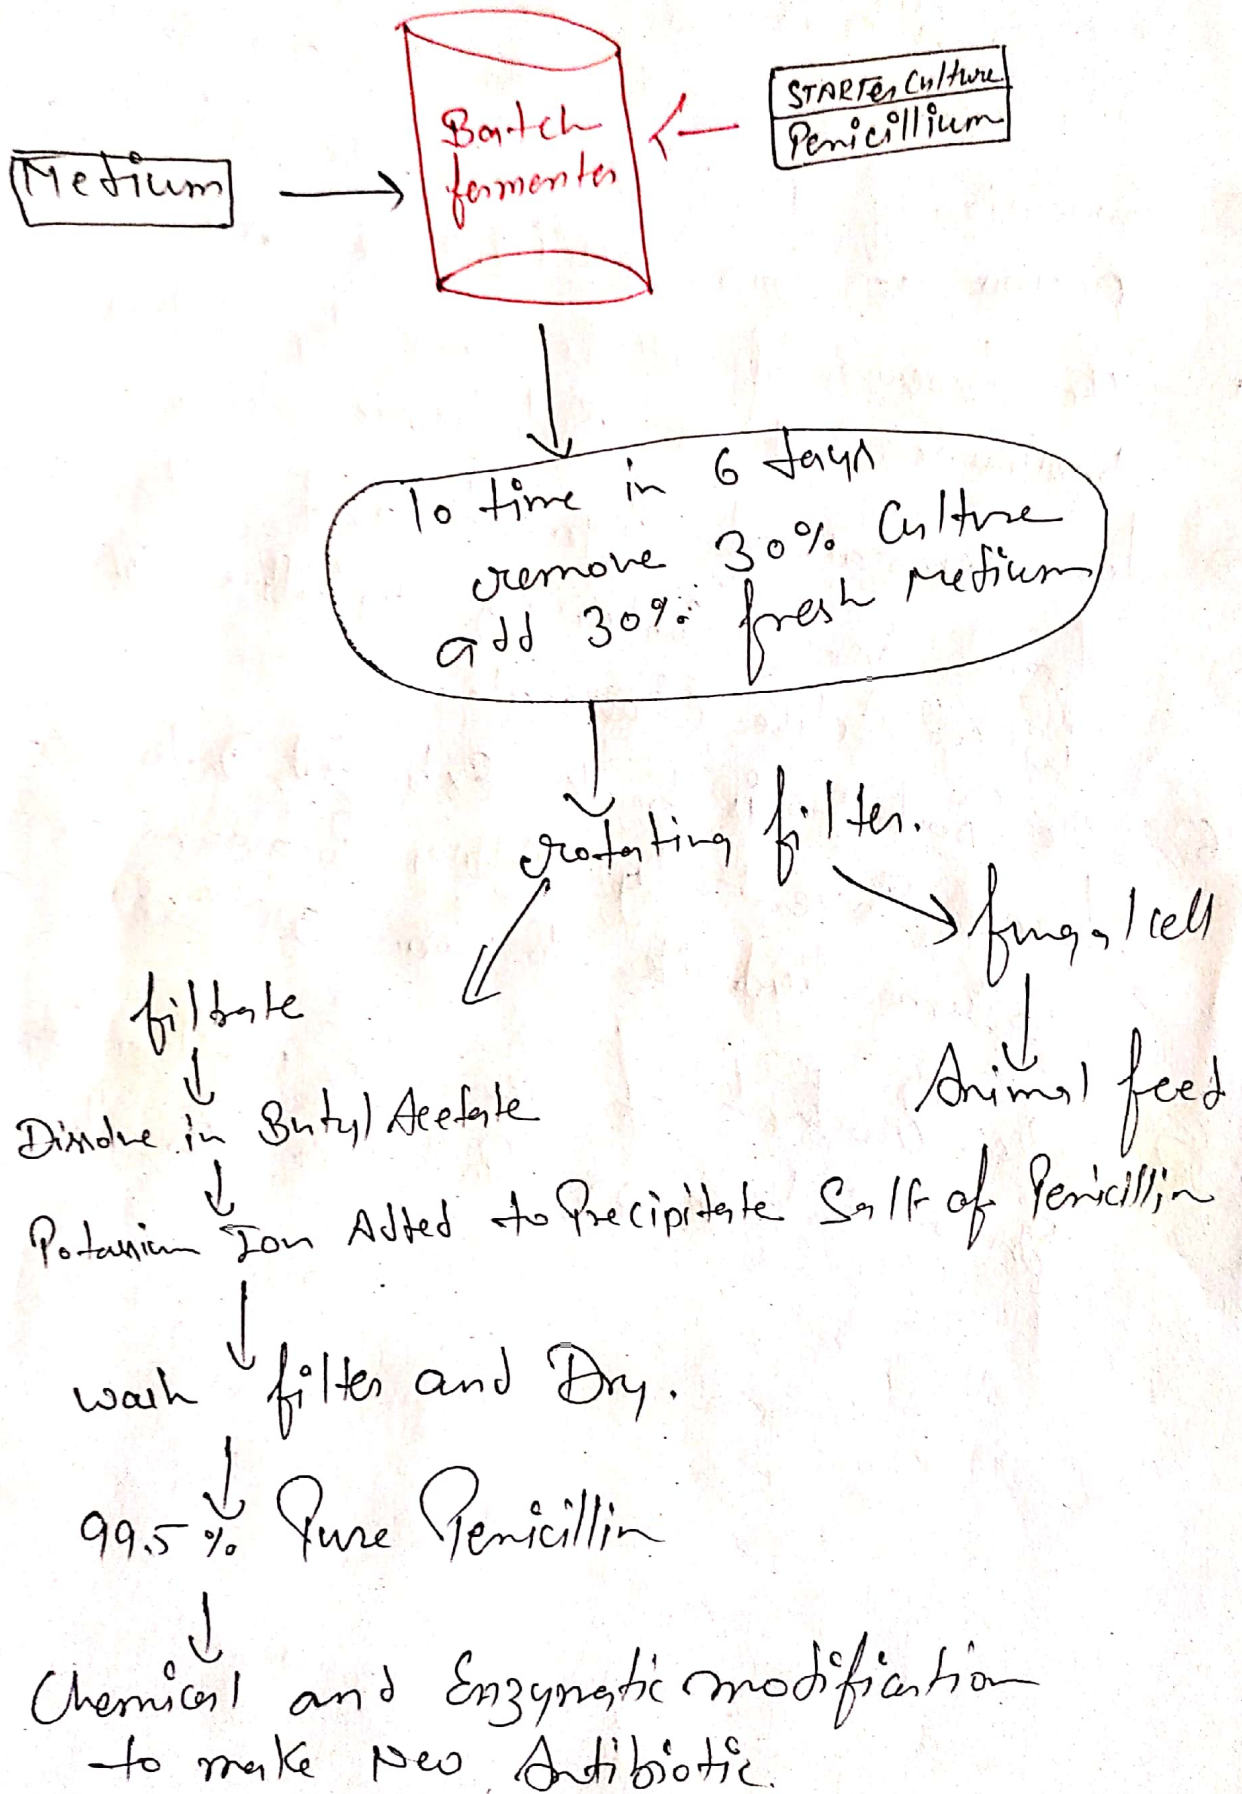 STARTER Culture
Penicillium
Medium
Batch
fermenter
10 time in 6 days
remove 30% Culture
add 30% fresh Medium
rotating filter.
fungal cell
filtrate
Animal feed
Dissolve in Butyl Acetate
Potassium Ion Added to Precipitate Salt of Penicillin
wash filter and Dry.
99.5% Pure Penicillin
Chemical and Enzymatic modification
to make Neo Antibiotic.